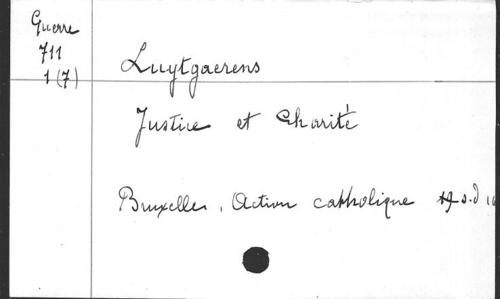 Guerre
711
1 (7)
Luytgaerens
Justice et Charité
Bruxelles, Action catholique s.d